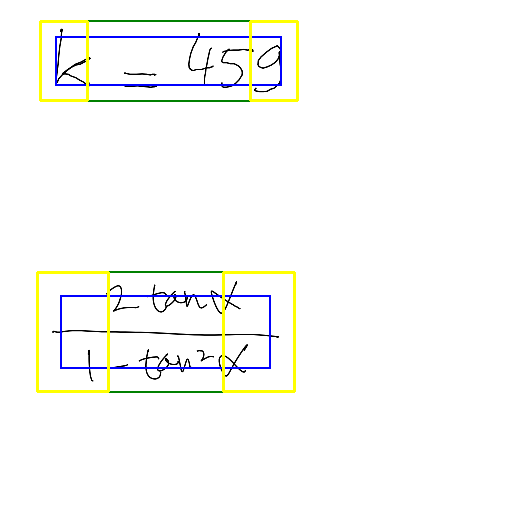 k = 459
\frac{2 \tan \alpha}{1 - \tan^2 \alpha}